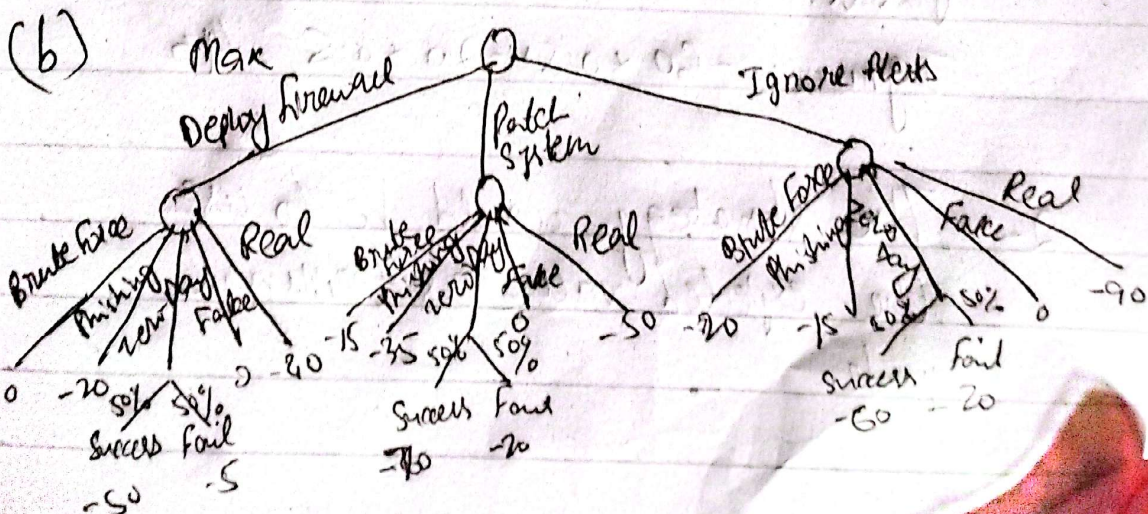 (b)
Max
Deploy Firewall
Patch System
Ignore Alerts
Brute Force
Phishing
zero Day
Fake
Real
0
-20
50%
50%
0
Success
Fail
-50
-5
Brute Force
Phishing
zero Day
Fake
Real
-15
-35
50%
50%
0
-50
Success
Fail
-20
Brute Force
Phishing
Day
Fake
Real
-15
50%
50%
0
-90
Success
Fail
-20